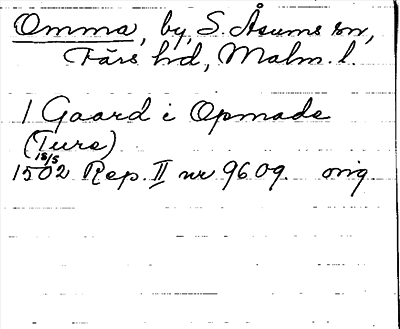 Omma, by, S. Åsums sn,
Färs hd, Malm. l.
1 Gaard i Opmade
(Ture)
18/5
1502 Rep. II nr 9609. orig.